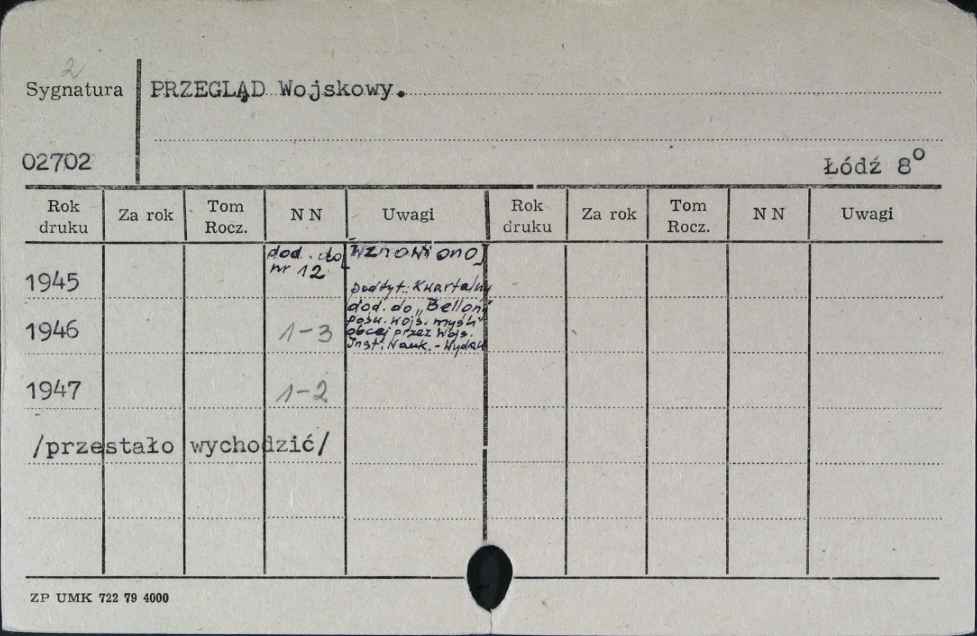 2
Sygnatura PRZEGLĄD Wojskowy.
02702 Łódź 8°
Rok druku Za rok Tom Rocz. N N Uwagi Rok druku Za rok Tom Rocz. N N Uwagi
1945 dod. do nr 12 [Wznowiono]
Podtyt. Kwartalny
dod. do „Bellony"
1946 1-3 pośw. wojs. myśli
obcej przez Wojs.
Inst. Nauk.-Wydaw
1947 1-2
/przestało wychodzić/
ZP UMK 722 79 4000